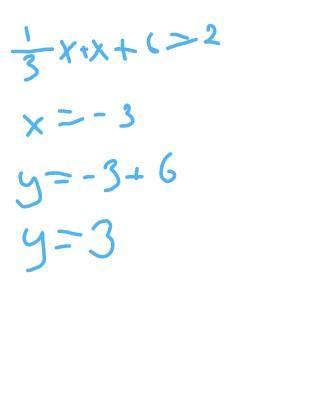 1/3 x + x + 6 = 2
x = -3
y = -3 + 6
y = 3